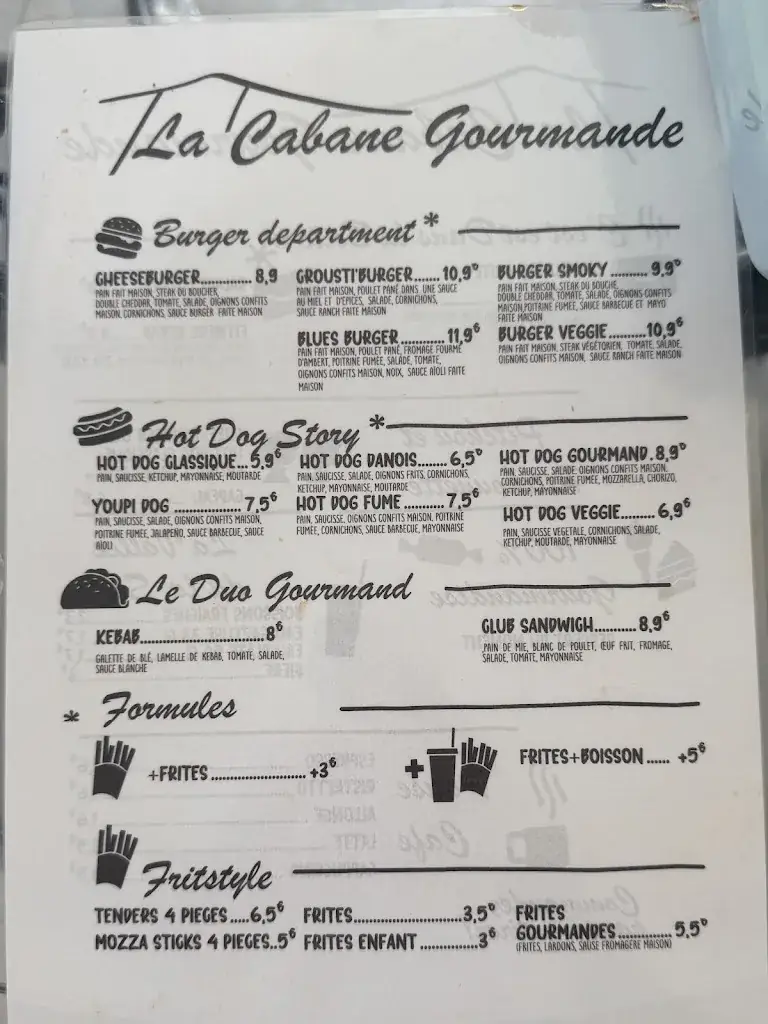 La Cabane Gourmande
Burger department *
CHEESEBURGER.............. 8,9
PAIN FAIT MAISON, STEAK DU BOUCHER,
DOUBLE CHEDDAR, TOMATE, SALADE, OIGNONS CONFITS
MAISON, CORNICHONS, SAUCE BURGER FAITE MAISON
CROUSTI'BURGER....... 10,9€
PAIN FAIT MAISON, POULET PANÉ DANS UNE SAUCE
AU MIEL ET D'ÉPICES, SALADE, CORNICHONS,
SAUCE RANCH FAITE MAISON
BURGER SMOKY .......... 9,9€
PAIN FAIT MAISON, STEAK DU BOUCHE,
DOUBLE CHEDDAR, TOMATE, SALADE, OIGNONS CONFITS
MAISON,POITRINE FUMÉE, SAUCE BARBECUE ET MAYO
FAITE MAISON
BLUES BURGER............ 11,9€
PAIN FAIT MAISON, POULET PANÉ, FROMAGE FOURME
D'AMBERT, POITRINE FUMÉE, SALADE, TOMATE,
OIGNONS CONFITS MAISON, NOIX, SAUCE AÏOLI FAITE
MAISON
BURGER VEGGIE..........10,9€
PAIN FAIT MAISON, STEAK VÉGÉTORIEN, TOMATE, SALADE,
OIGNONS CONFITS MAISON, SAUCE RANCH FAITE MAISON
Hot Dog Story *
HOT DOG CLASSIQUE... 5,9€
PAIN, SAUCISSE, KETCHUP, MAYONNAISE, MOUTARDE
HOT DOG DANOIS........ 6,5€
PAIN, SAUCISSE, SALADE, OIGNONS FRITS, CORNICHONS,
KETCHUP, MAYONNAISE, MOUTARDE
HOT DOG GOURMAND.8,9€
PAIN, SAUCISSE, SALADE, OIGNONS CONFITS MAISON,
CORNICHONS, POITRINE FUMÉE, MOZZARELLA, CHORIZO,
KETCHUP, MAYONNAISE
YOUPI DOG ................. 7,5€
PAIN, SAUCISSE, SALADE, OIGNONS CONFITS MAISON,
POITRINE FUMÉE, JALAPENO, SAUCE BARBECUE, SAUCE
AÏOLI
HOT DOG FUME ........... 7,5€
PAIN, SAUCISSE, OIGNONS CONFITS MAISON, POITRINE
FUMÉE, CORNICHONS, SAUCE BARBECUE, MAYONNAISE
HOT DOG VEGGIE......... 6,9€
PAIN, SAUCISSE VEGETALE, CORNICHONS, SALADE,
KETCHUP, MOUTARDE, MAYONNAISE
Le Duo Gourmand
KEBAB............................... 8€
GALETTE DE BLÉ, LAMELLE DE KEBAB, TOMATE, SALADE,
SAUCE BLANCHE
CLUB SANDWICH........... 8,9€
PAIN DE MIE, BLANC DE POULET, ŒUF FRIT, FROMAGE,
SALADE, TOMATE, MAYONNAISE
* Formules
+FRITES ........................ +3€
+ FRITES+BOISSON ...... +5€
Fritstyle
TENDERS 4 PIECES .....6,5€
FRITES...........................3,5€
FRITES
GOURMANDES.............. 5,5€
(FRITES, LARDONS, SAUSE FROMAGÈRE MAISON)
MOZZA STICKS 4 PIECES..5€
FRITES ENFANT .............. 3€